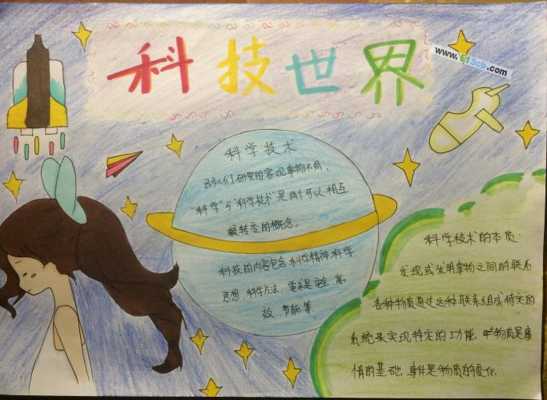 科技世界
科学技术
研究的客观事物不同，
"科学"与"科学技术"是两个可以相互
被转变的概念。
科技的内容包含科学精神 科学
思想 科学方法
效、节能等
科学技术的本质：
发现或发明事物之间的联系
各种物质通过这种联系组成特定的
系统来实现特定的功能
的基础 事件是物质的变化
www. .com